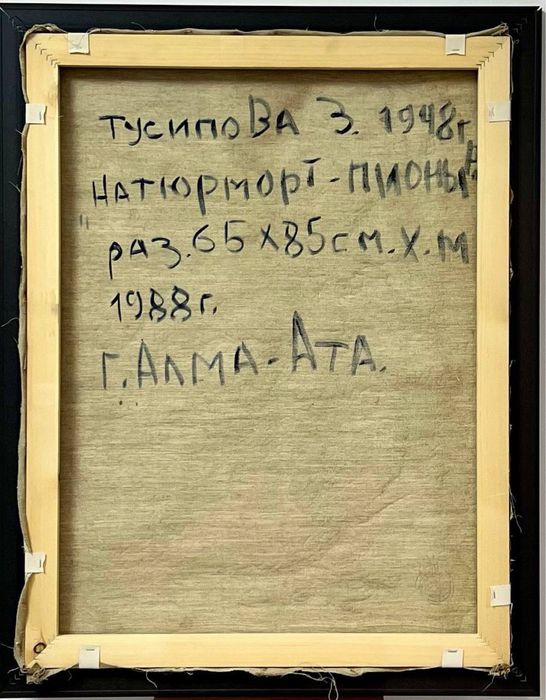 Тусипова З. 1948г
"Натюрморт-пионы"
раз.65х85см.х.м
1988г.
г.Алма-Ата.